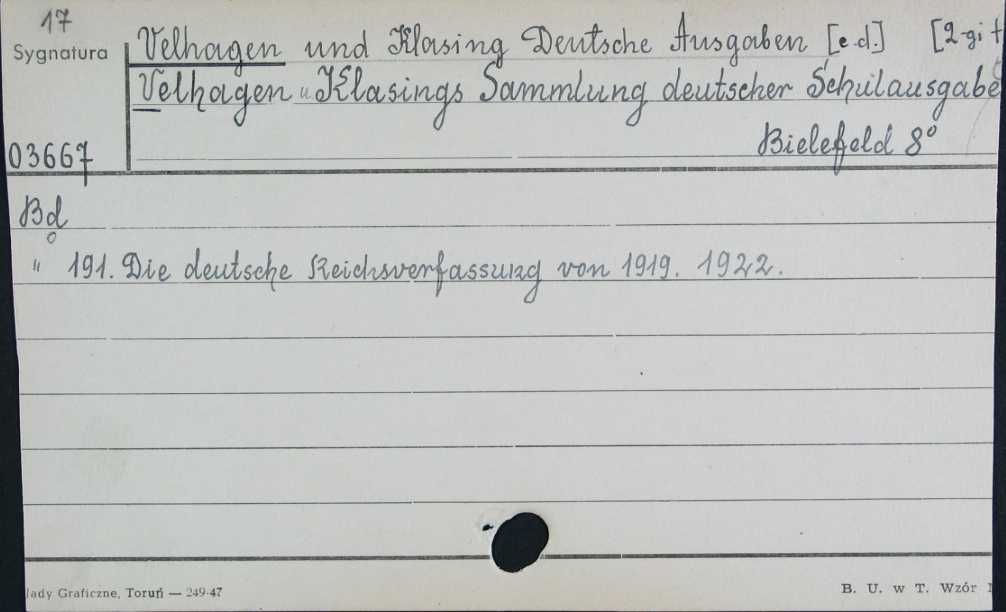 17
Sygnatura
Velhagen und Klasing Deutsche Ausgaben [e.d.] [2-gi t
Velhagen u Klasings Sammlung deutscher Schulausgabe
03667
Bielefeld 8°
Bd
" 191. Die deutsche Reichsverfassung von 1919. 1922.
łady Graficzne, Toruń — 249-47
B. U. w T. Wzór